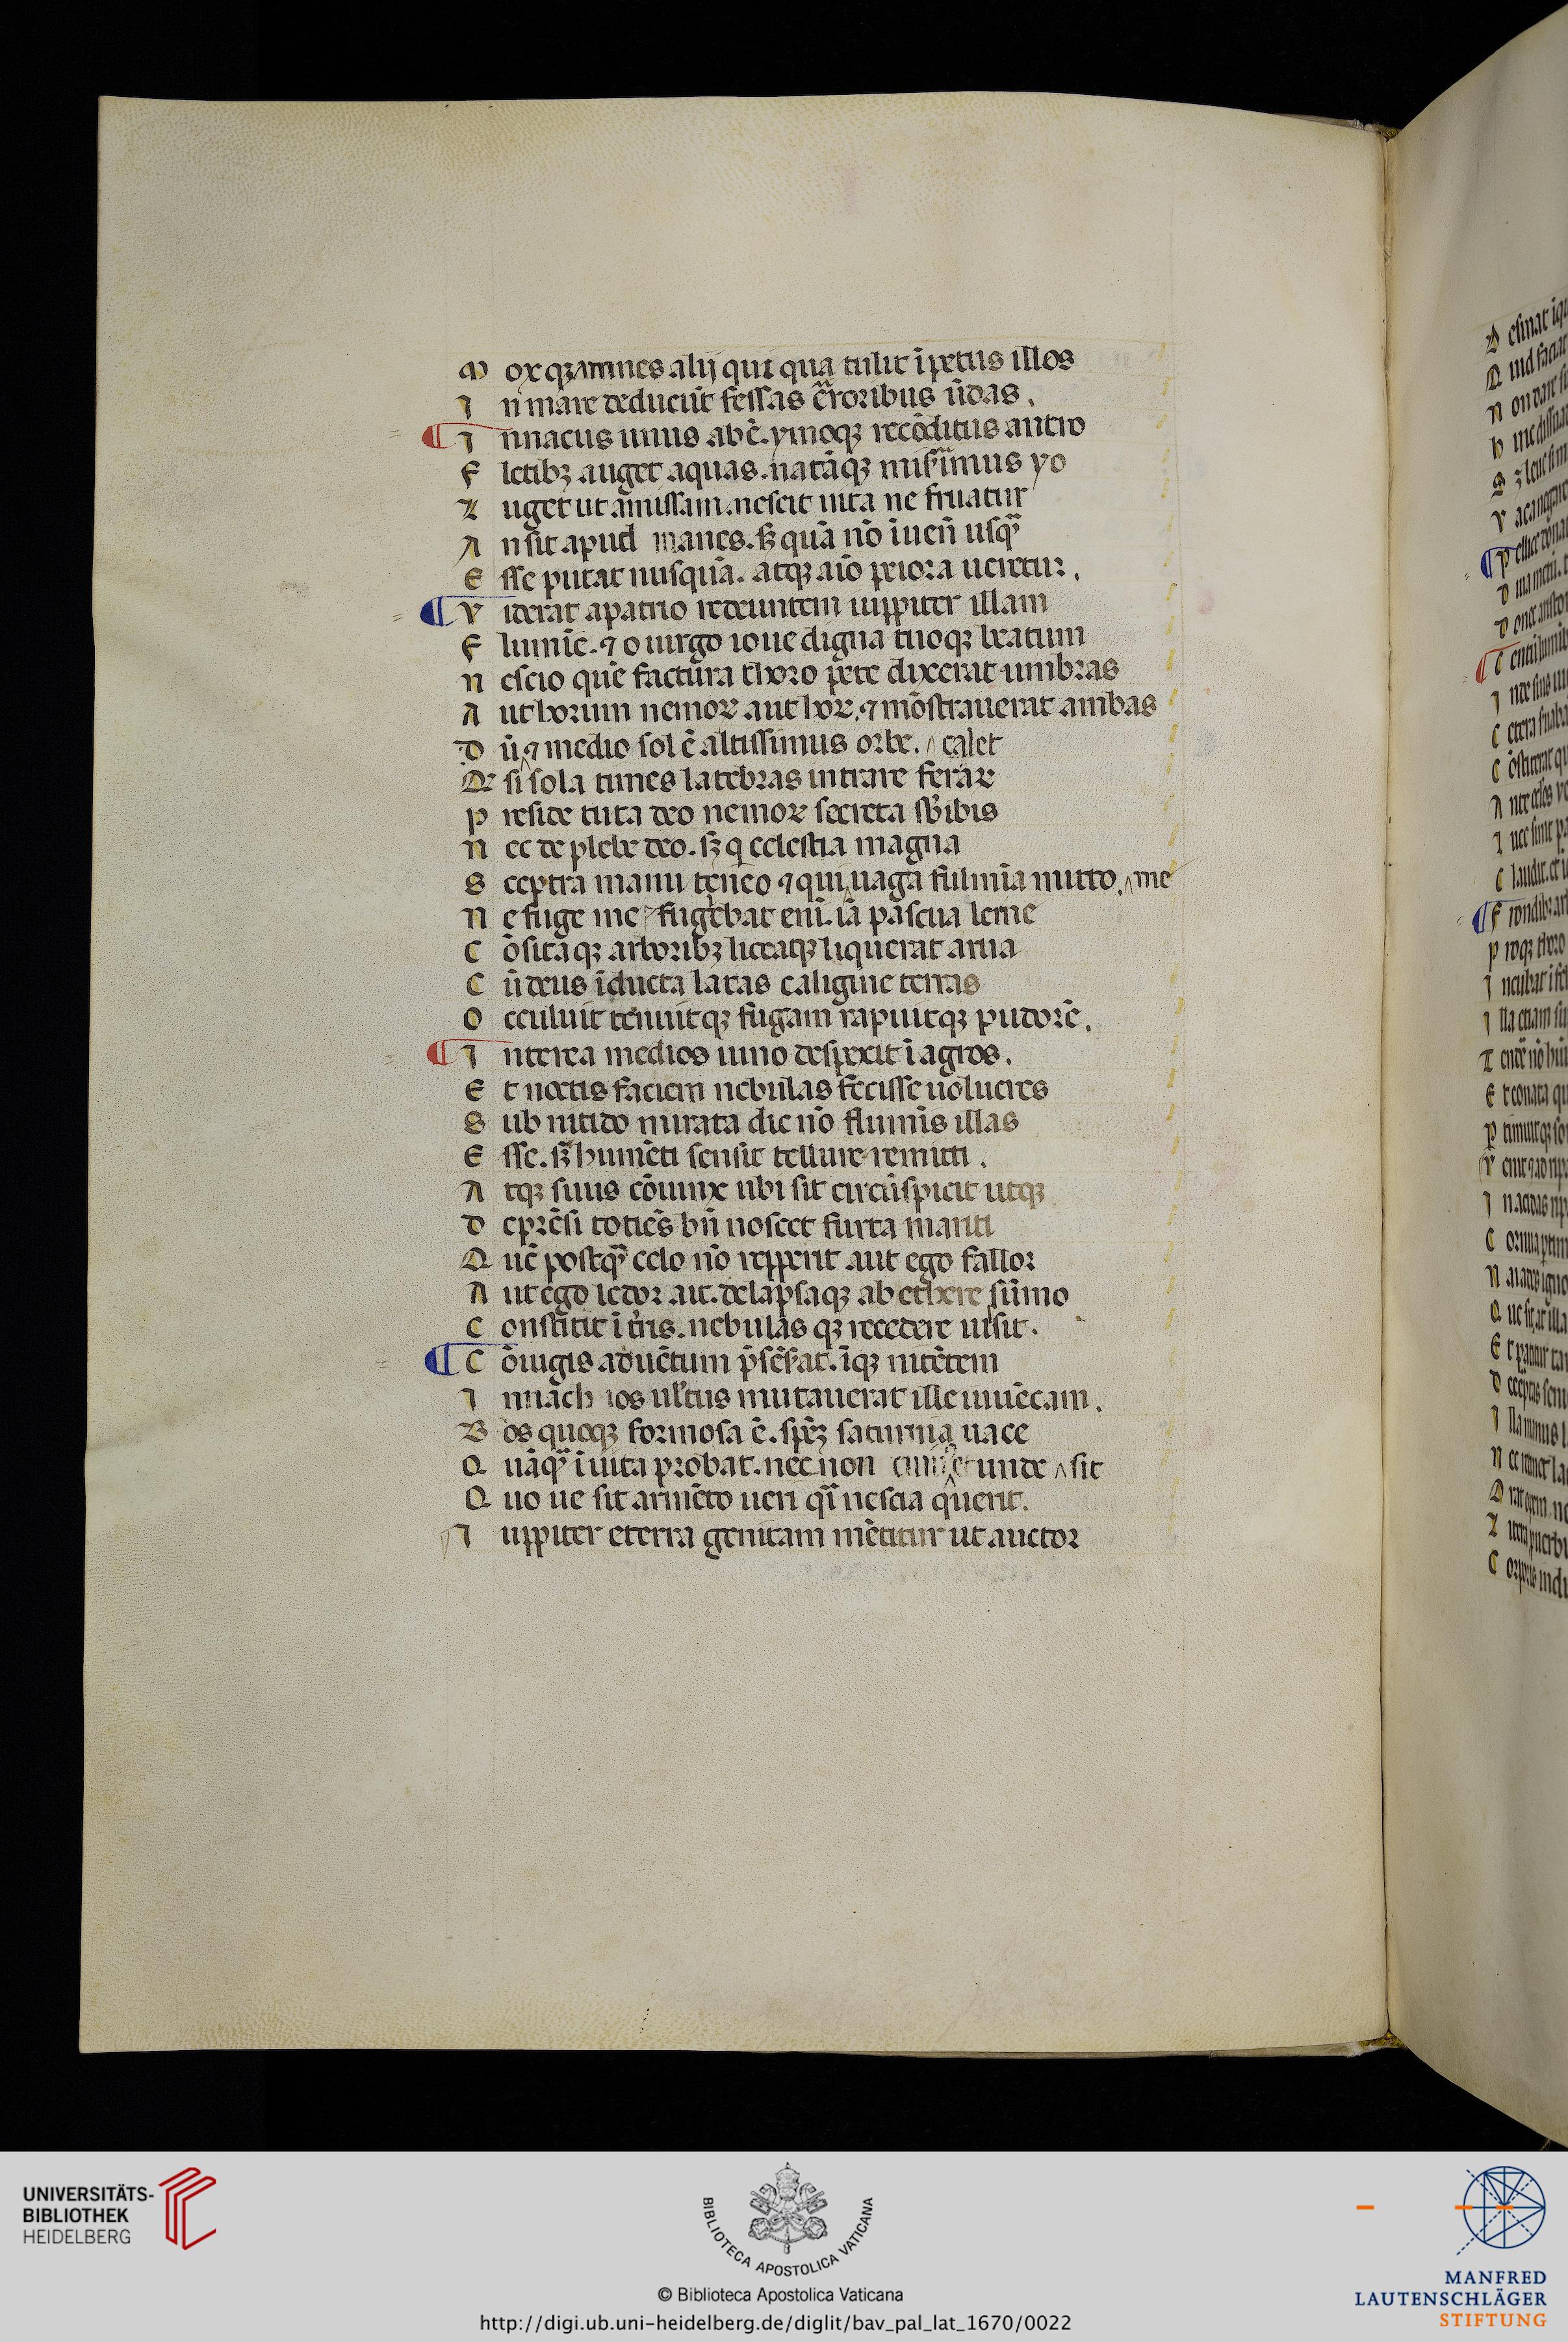 M ox qꝫ amnes alij qui qua tulit īpetus illos
I n mare deducūt fessas erroribus ūdas.
¶ I nnacus unus abē. ymoqꝫ recōditus antro
F letibꝫ auget aquas. natāqꝫ mis͛imus yo
L uget ut amissam. nescit uita ne fruatur
A n sit apud manes. sꝫ quā nō īueñ usqᷓ
E sse putat nusquā. atqꝫ aīo peiora ueretur.
¶ V iderat apatrio redeuntem iuppiter illam
F lumīe. ⁊ o uirgo ioue digna tuoqꝫ beatum
N escio quē factura thoro pete dixerat umbras
A ut horum nemorꝝ aut horꝝ. ⁊ mōstrauerat ambas
D ū ⁊ medio sol ē altissimus orbe. calet
Q˙ si sola times latebras intrare ferarꝝ
P reside tuta deo nemorꝝ secreta sb̄ibis
N ec de plebe deo. sꝫ q celestia magna
S ceptra manu teneo ⁊ qui uaga fulmīa mitto. me
N e fuge me fugiebat eni. iā pascua lerne
C ōsitaqꝫ arboribꝫ liceaqꝫ liquerat arua
C ū deus īducta latas caligine terras
O cculuit tenuitqꝫ fugam rapuitqꝫ pudorē.
¶ I nterea medios iuno despexit ī agros.
E t noctis faciem nebulas fecisse uolucres
S ub nitido mirata die nō flumīs illas
E sse. sꝫ humēti sensit tellure remitti.
A tqꝫ suus cōiunx ubi sit circūspicit utqꝫ
D eprēsi totiēs bñ noscet furta mariti
Q uē postqᷓ celo nō repperit aut ego fallor
A ut ego ledor ait. delapsaqꝫ ab ethere sūmo
C onstitit ī t͛ris. nebulas qꝫ recedere iusit.
¶ C ōiugis aduētum p̄sēs͛at. īqꝫ nitētem
I nnach ios ul̄tus mutauerat ille iuuēcam.
B os quoqꝫ formosa ē. spēꝫ saturnia uace
Q uāqᷓ īuita probat. nec non cuius et unde sit
Q uo ue sit armēto ueri qᷓi nescia querit.
I uppiter eterra genitam mētitur ut auctor
UNIVERSITÄTS-
BIBLIOTHEK
HEIDELBERG
BIBLIOTECA APOSTOLICA VATICANA
© Biblioteca Apostolica Vaticana
http://digi.ub.uni-heidelberg.de/diglit/bav_pal_lat_1670/0022
MANFRED
LAUTENSCHLÄGER
STIFTUNG